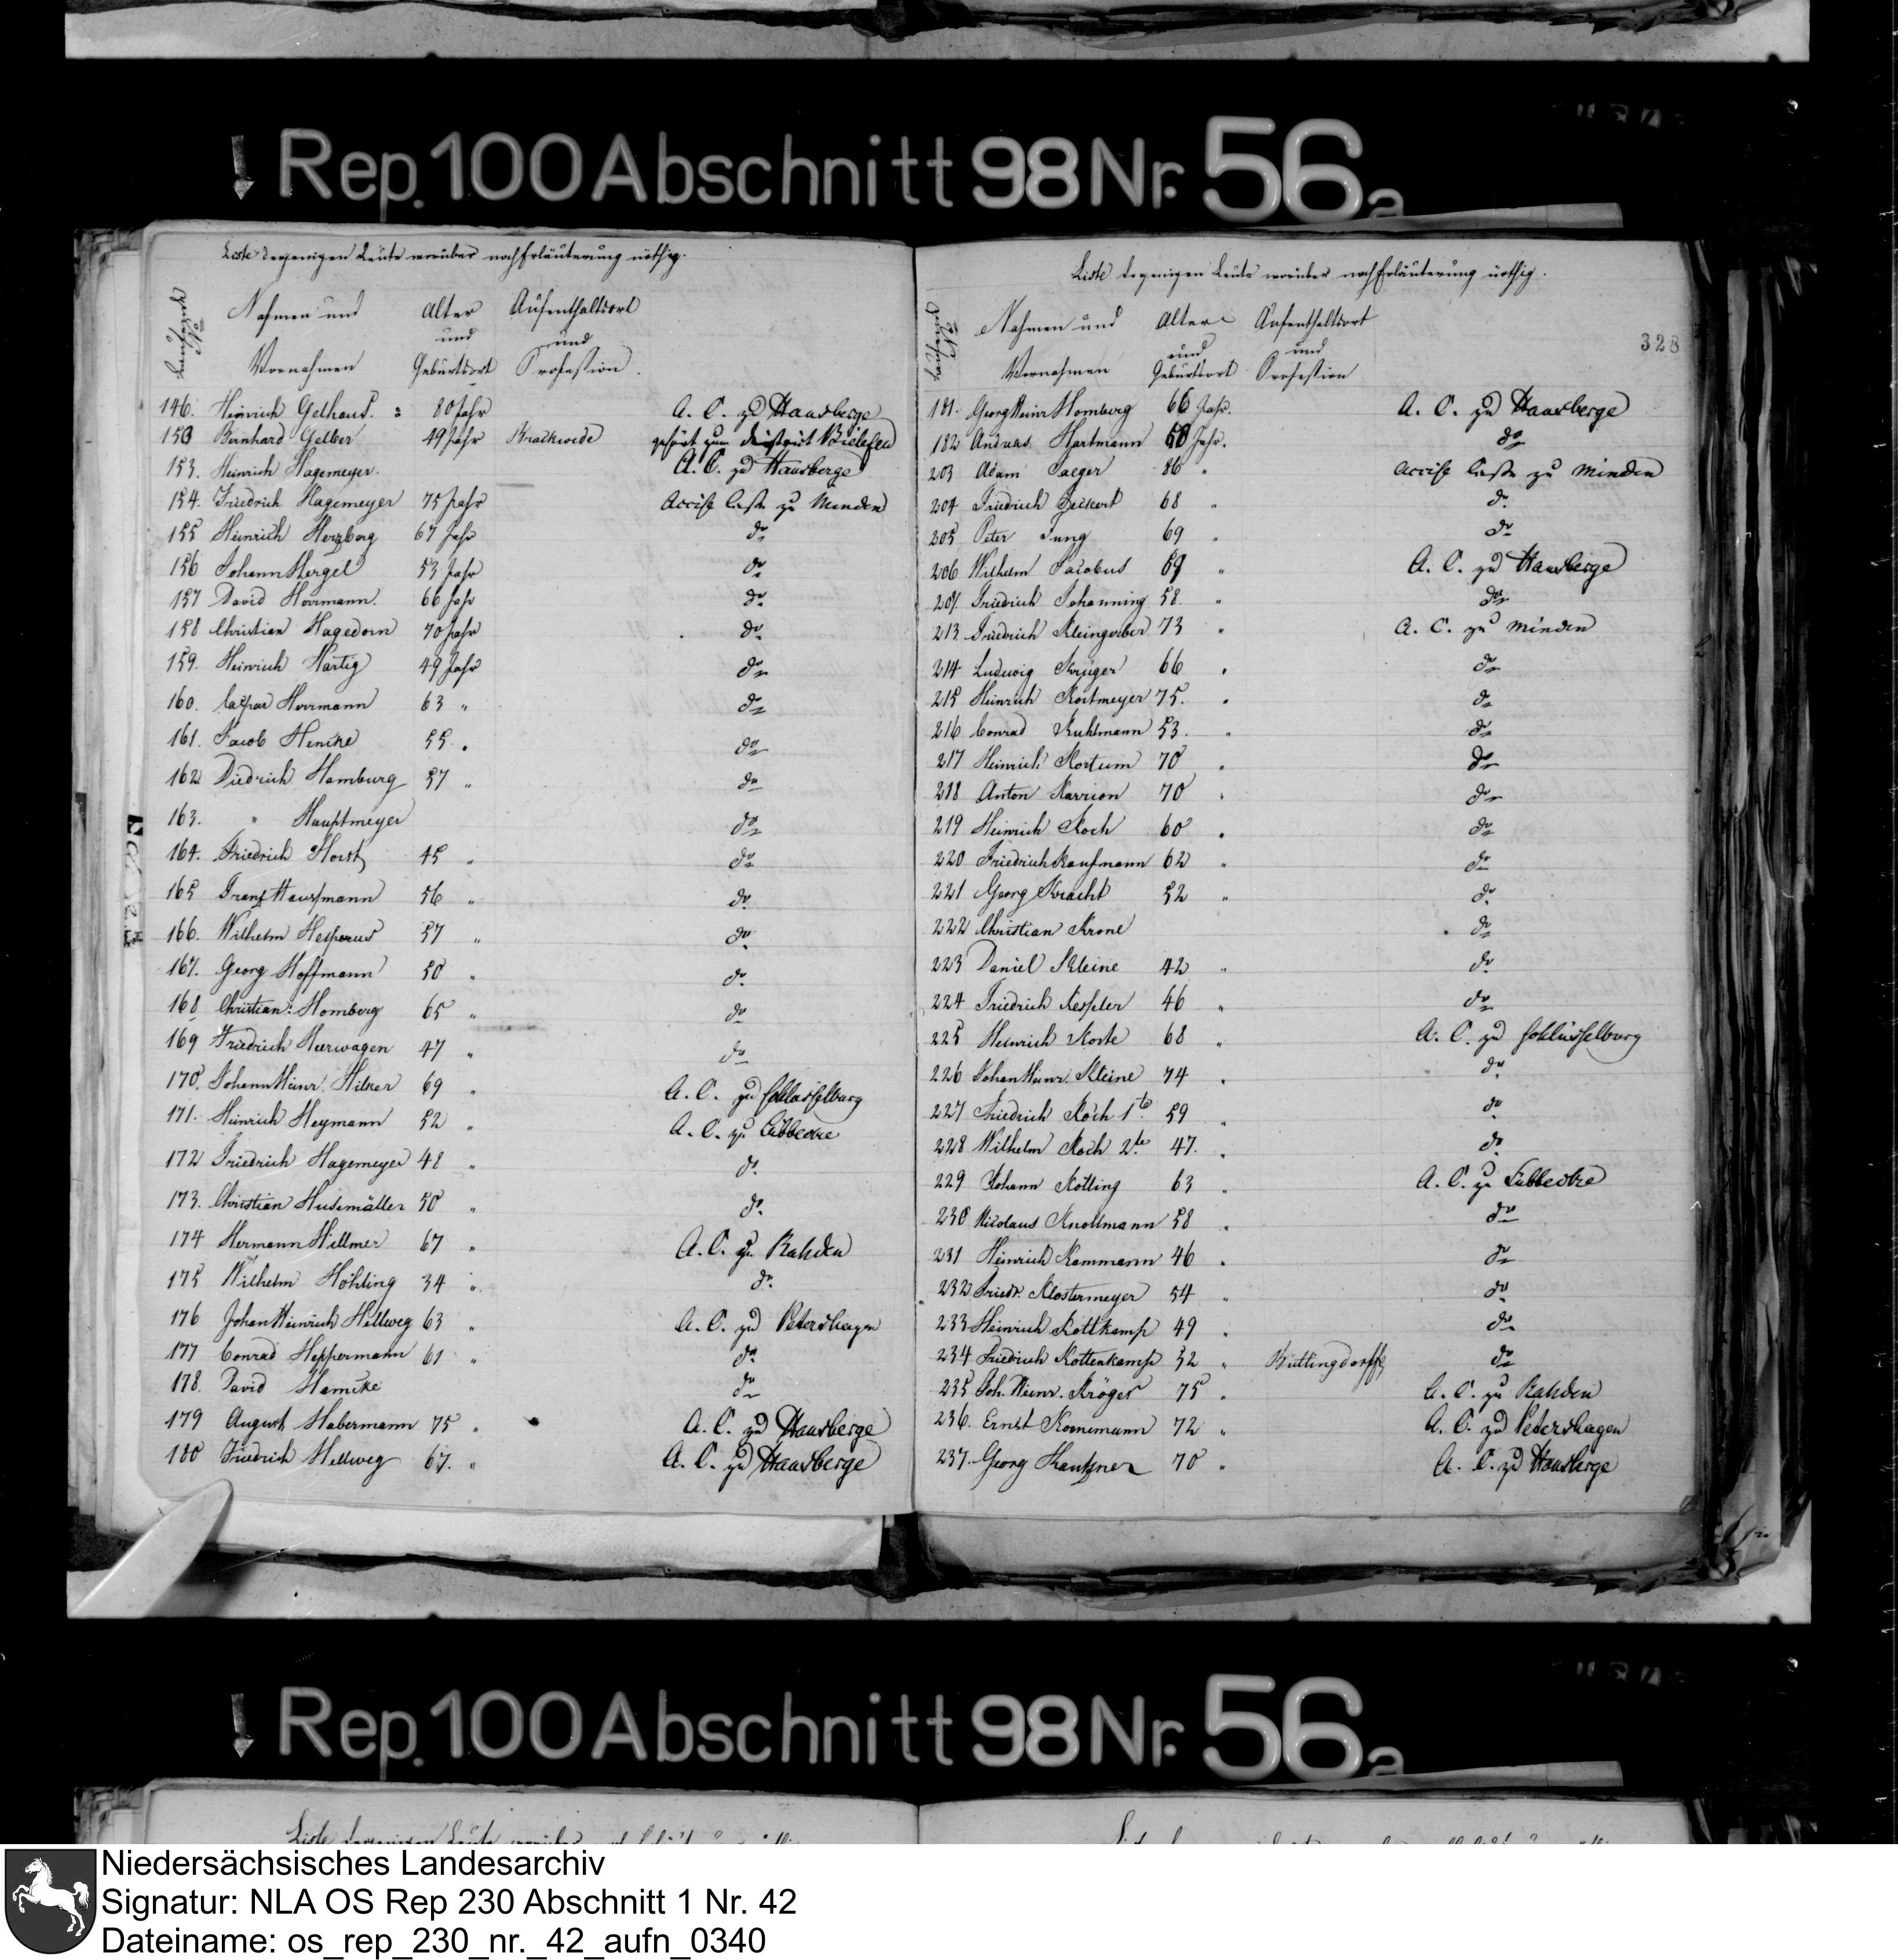 Rep. 100 Abschnitt 98 Nr. 56a
Liste derjenigen Leute worüber noch Erläuterung nöthig.
Nahmen und Vornahmen
Alter und Geburtsort
Aufenthaltsort und Profession.
146. Heinrich Gelhaus. 80 Jahr A. C. zu Hausberge
150 Bernhard Gelker 49 Jahr Brackwede gehört zum district Bielefeld
153. Heinrich Hagemeyer. A. C. zu Hausberge
154. Friedrich Hagemeyer 75 Jahr Accise Casse zu Minden
155 Heinrich Herzberg 67 Jahr do
156 Johann Hergel 53 Jahr do
157 David Herrmann. 66 Jahr do
158 Christian Hagedorn 70 Jahr do
159. Heinrich Hartig 49 Jahr do
160. Caspar Herrmann 63 " do
161. Jacob Hencke 55. " do
162 Diedrich Hamburg 57 " do
163. " Hauptmeyer do
164. Friedrich Horst 45 " do
165 Franz Hausmann 56 " do
166. Wilhelm Hesperus 57 " do
167. Georg Hoffmann 50 " do
168 Christian Homberg 65 " do
169 Friedrich Heerwagen 47 " do
170. Johann Heinr. Hilker 69 " A. C. zu Schlüsselburg
171. Heinrich Heymann 52 " A. C. zu Lübbecke
172 Friedrich Hagemeyer 48 " do
173. Christian Husemäller 50 " do
174 Hermann Hillmer 67 " A. C. zu Rahden
175 Wilhelm Höhling 34 " do
176 Johan Heinrich Hellweg 63 " A. C. zu Petershagen
177 Conrad Heppermann 61 " do
178. David Hamcke do
179 August Habermann 75 " A. C. zu Hausberge
180 Friedrich Hellweg 67. " A. C. zu Hausberge
Liste derjenigen Leute worüber noch Erläuterung nöthig.
328
Nahmen und Vornahmen
Alter und Geburtsort
Aufenthaltsort und Profession
181. Georg Heinr Homburg 66 Jahr. A. C. zu Hausberge
182 Andreas Hartmann 50 Jahr. do
203 Adam Jaeger 86 " Accise Casse zu Minden
204 Friedrich Jeckert 68 " do
205 Peter Jung 69 " do
206 Wilhelm Jacobus 59 " A. C. zu Hausberge
207. Friedrich Johanning 58. " do
213 Friedrich Kleingerber 73 " A. C. zu Minden
214 Ludewig Krüger 66 " do
215 Heinrich Kortmeyer 75. " do
216 Conrad Kuhlmann 53. " do
217 Heinrich Kortum 70 " do
218 Anton Karrion 70 " do
219 Heinrich Koch 60 " do
220 Friedrich Kaufmann 62 " do
221 Georg Kracht 52 " do
222 Christian Krone do
223 Daniel Kleine 42 " do
224 Friedrich Kessler 46 " do
225 Heinrich Korte 68 " A. C. zu Schlüsselburg
226 Johan Heinr. Kleine 74 " do
227 Friedrich Koch 1te 59 " do
228 Wilhelm Koch 2te 47. " do
229 Johann Kölling 63 " A. C. zu Lübbecke
230 Nicolaus Knollmann 58 " do
231 Heinrich Kammann 46 " do
232 Friedr. Klostermeyer 54 " do
233 Heinrich Kottkamp 49 " do
234 Friedrich Kottenkamp 52 " Büttingdorff do
235 Joh. Heinr. Kröger 75 " A. C. zu Rahden
236. Ernst Kornemann 72 " A. C. zu Petershagen
237. Georg Kautzner 70 " A. C. zu Hausberge
Rep. 100 Abschnitt 98 Nr. 56a
Niedersächsisches Landesarchiv
Signatur: NLA OS Rep 230 Abschnitt 1 Nr. 42
Dateiname: os_rep_230_nr._42_aufn_0340